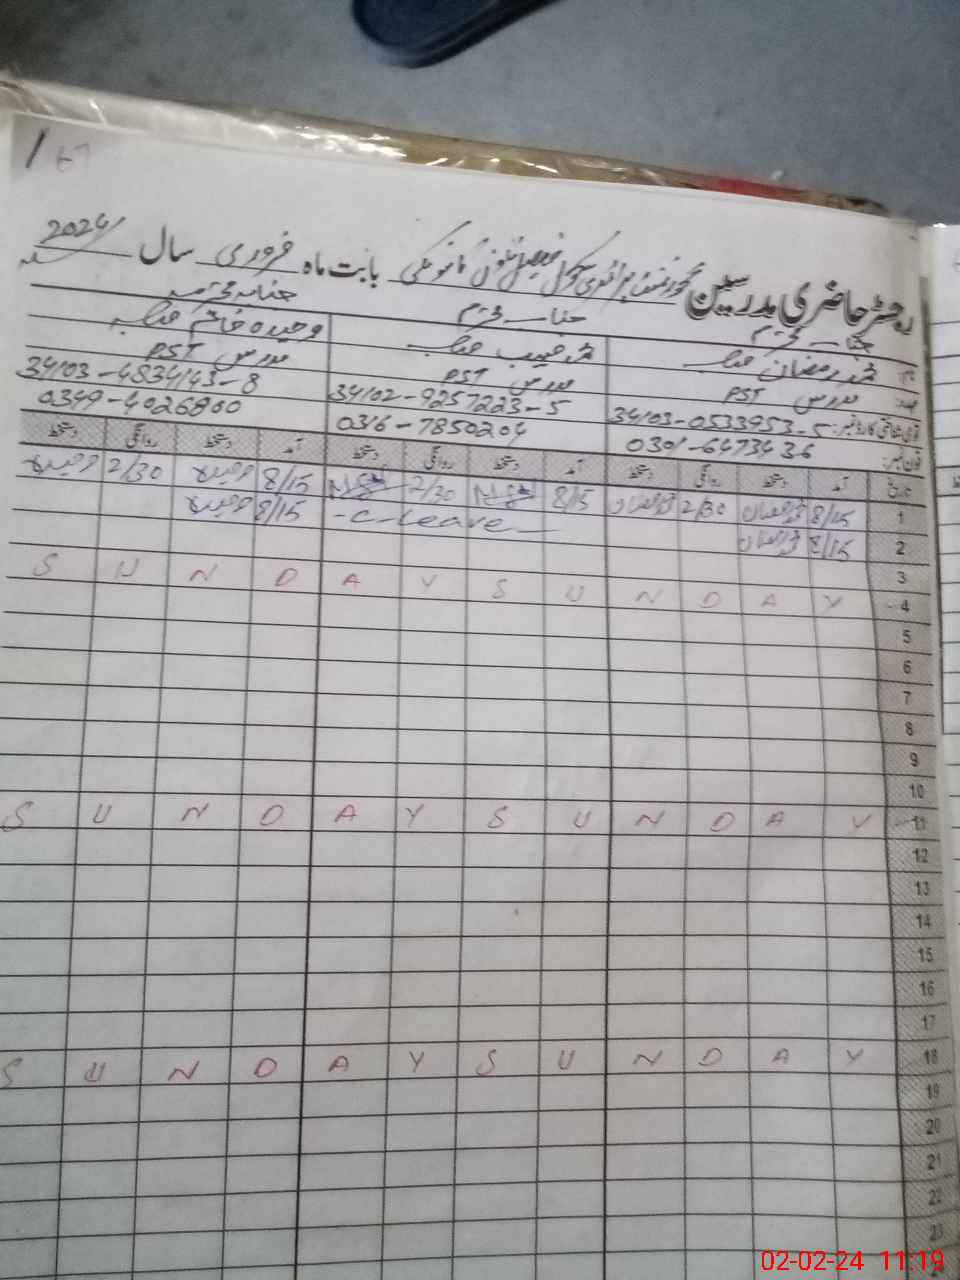 2024/
رجسٹر حاضری مدرسین گورنمنٹ پرائمری سکول بابت ماہ فروری سال
جناب محترم
جناب محترم
جنابہ محترمہ
محمد رمضان صاحب
محمد حبیب صاحب
وحیدہ خانم صاحبہ
مدرس PST
مدرس PST
مدرس PST
قومی شناختی کارڈ نمبر: 34103-0533953-5
34102-9257223-5
34103-4834143-8
فون نمبر: 0301-6473436
0316-7850204
0349-4026800
تاریخ آمد دستخط روانگی دستخط آمد دستخط روانگی دستخط آمد دستخط روانگی دستخط
1 8/15 محمد رمضان 2/30 محمد رمضان 8/15 2/30 8/15 وحیدہ 2/30 وحیدہ
2 8/15 محمد رمضان -C-Leave- 8/15 وحیدہ
3
S U N D A Y S U N D A Y 4
5
6
7
8
9
10
S U N D A Y S U N D A Y 11
12
13
14
15
16
17
S U N D A Y S U N D A Y 18
19
20
21
22
23
02-02-24 11:19